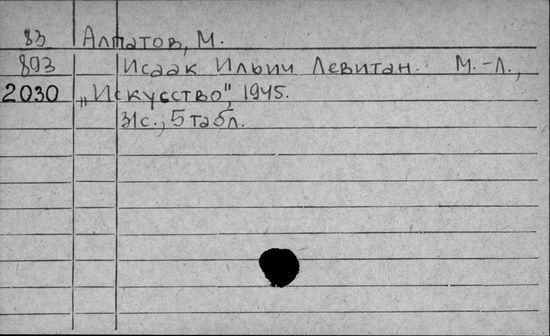 83 Алпатов, М.
893 Исаак Ильич Левитан. М.-Л.,
2030 „Искусство", 1945.
31с., 5 табл.